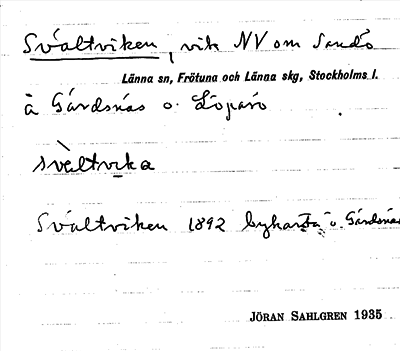 Svältviken, vik NV om Sandö
Länna sn, Frötuna och Länna skg, Stockholms l.
å Gårdsnäs o. Löparö.
svèltvika
Svältviken 1892 bykarta ö. Gårdsnäs
JÖRAN SAHLGREN 1935